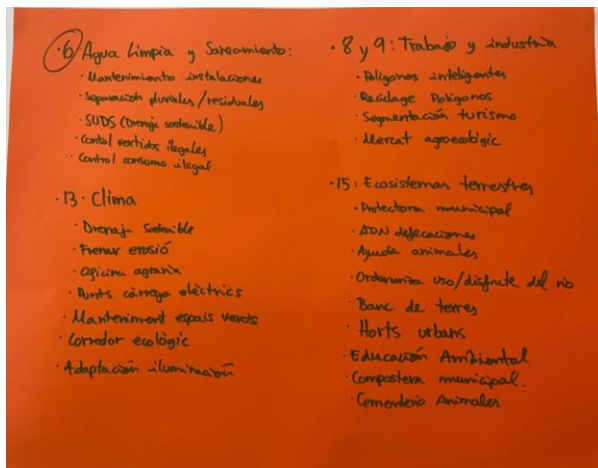 ·6 Agua Limpia y Saneamiento:
· Mantenimiento instalaciones
· Separación pluviales/residuales
· SUDS (Drenaje sostenible)
· Control vertidos ilegales
· Control consumo ilegal
·13· Clima
· Drenaje Sostenible
· Frenar erosió
· Oficina agraria
· Punts càrrega elèctrics
· Manteniment espais verds
· Corredor ecològic
· Adaptación iluminación
·8 y 9: Trabajo y industria
· Polígonos inteligentes
· Reciclage Polígonos
· Segmentación turismo
· Mercat agroecològic
·15: Ecosistemas terrestres
· Protectora municipal
· ADN defecaciones
· Ayuda animales
· Ordenanza uso/disfrute del río
· Banc de terres
· Horts urbans
· Educación Ambiental
· Compostera municipal.
· Cementerio Animales